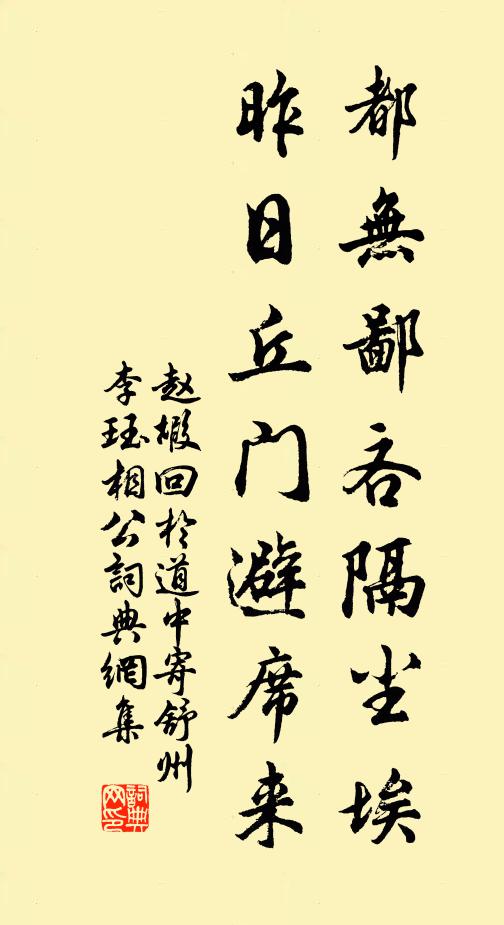 都無鄙吝隔尘埃
昨日丘门避席来
赵嘏回於道中寄舒州
李珏相公詞典網集
詞典网印